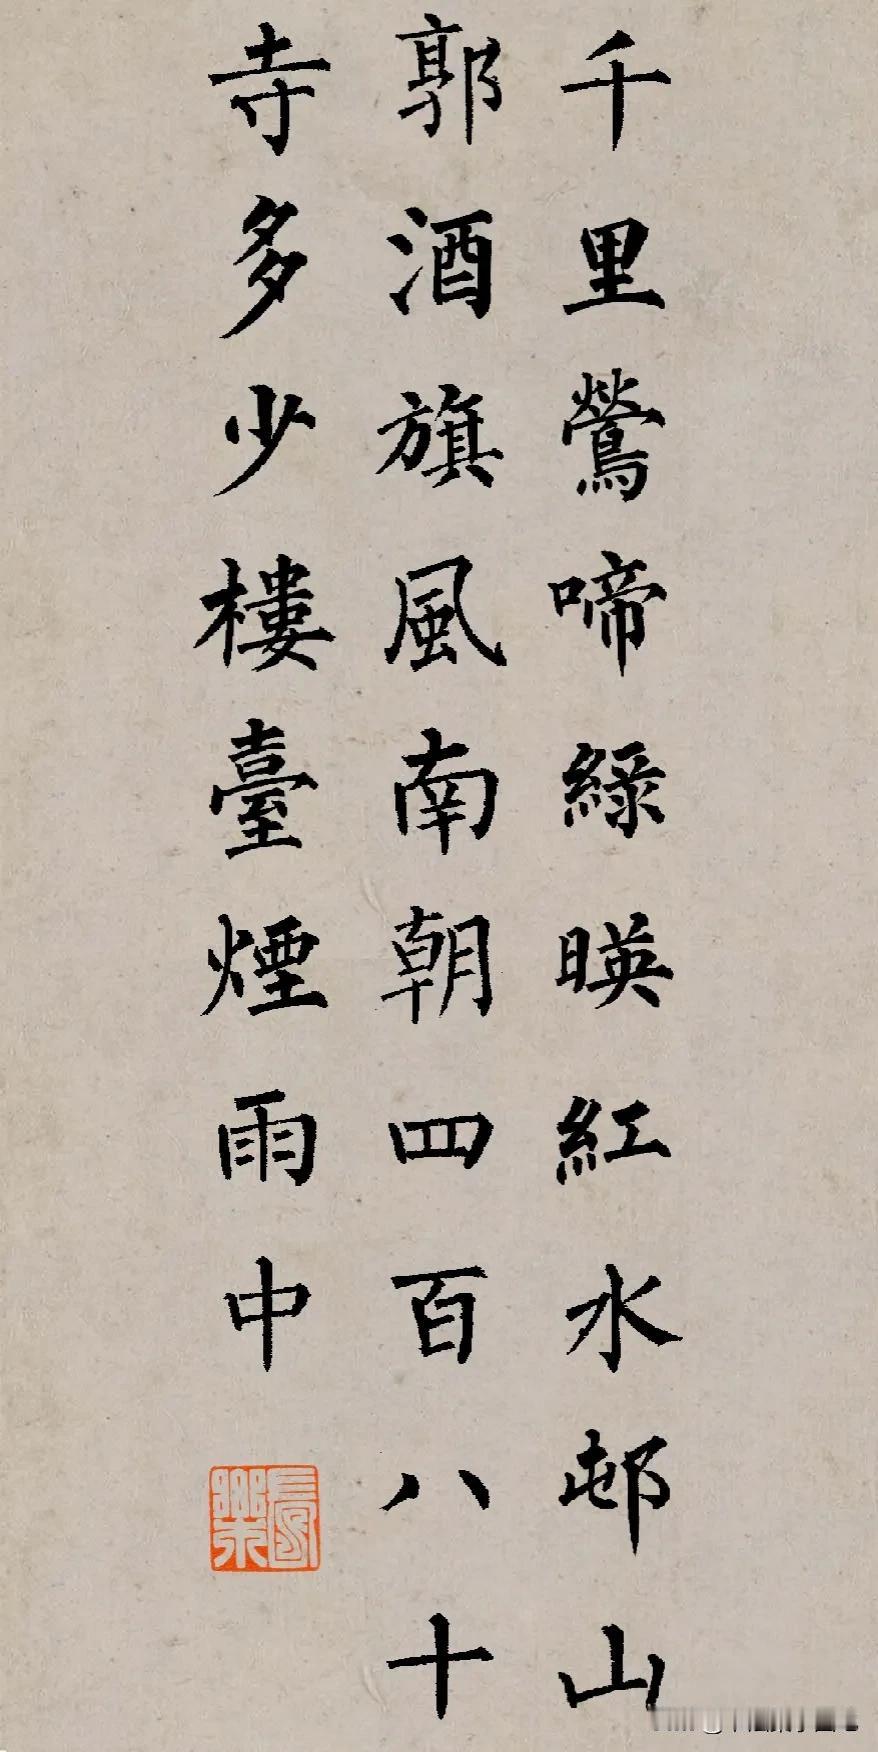 千里鶯啼綠暎紅水邨山
郭酒旗風南朝四百八十
寺多少樓臺煙雨中